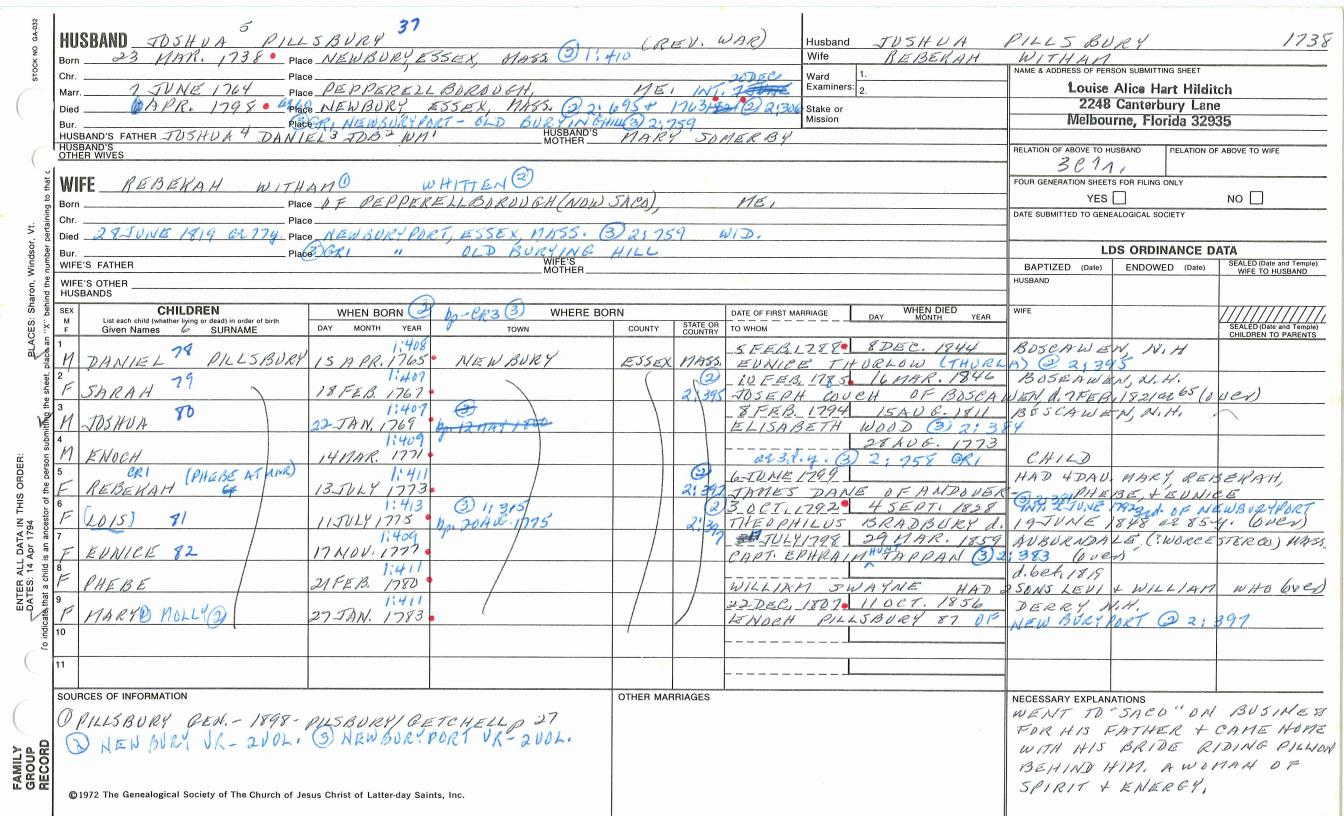 STOCK NO. GA-032
PLACES: Sharon, Windsor, Vt.
ENTER ALL DATA IN THIS ORDER:
DATES: 14 Apr 1794
To indicate that a child is an ancestor of the person submitting the sheet, place an "X" behind the number pertaining to that c
FAMILY GROUP RECORD
HUSBAND JOSHUA 5 PILLSBURY 37 (REV. WAR)
Born 23 MAR. 1738 Place NEWBURY, ESSEX, MASS ② 1:410
Chr. Place
Marr. 7 JUNE 1764 Place PEPPERELLBOROUGH, ME; INT. 20 DEC
Died 6 APR. 1798 Place NEWBURY ESSEX, MASS. ② 2:695 + 1763 ② 2:306
Bur. Place GRI NEWBURYPORT - OLD BURYING HILL ③ 2:759
HUSBAND'S FATHER JOSHUA 4 DANIEL 3 JOB 2 WM 1 HUSBAND'S MOTHER MARY SOMERBY
HUSBAND'S OTHER WIVES
Husband JOSHUA PILLSBURY 1738
Wife REBEKAH WITHAM
Ward Examiners: 1.
2.
Stake or Mission
NAME & ADDRESS OF PERSON SUBMITTING SHEET
Louise Alice Hart Hilditch
2248 Canterbury Lane
Melbourne, Florida 32935
RELATION OF ABOVE TO HUSBAND RELATION OF ABOVE TO WIFE
FOUR GENERATION SHEETS FOR FILING ONLY
YES NO
DATE SUBMITTED TO GENEALOGICAL SOCIETY
WIFE REBEKAH WITHAM ① WHITTEN ②
Born Place OF PEPPERELLBOROUGH (NOW SACO), ME,
Chr. Place
Died 28 JUNE 1819 ae 77y Place NEWBURYPORT, ESSEX, MASS. ③ 2:759 WID.
Bur. Place GRI " OLD BURYING HILL
WIFE'S FATHER WIFE'S MOTHER
WIFE'S OTHER HUSBANDS
LDS ORDINANCE DATA
BAPTIZED (Date) ENDOWED (Date) SEALED (Date and Temple) WIFE TO HUSBAND
HUSBAND
WIFE
SEALED (Date and Temple) CHILDREN TO PARENTS
SEX M F CHILDREN List each child (whether living or dead) in order of birth Given Names 6 SURNAME
WHEN BORN ② bp-CR3 ③ WHERE BORN
DAY MONTH YEAR TOWN COUNTY STATE OR COUNTRY
DATE OF FIRST MARRIAGE TO WHOM
WHEN DIED DAY MONTH YEAR
1 M DANIEL 78 PILLSBURY 15 APR. 1765 1:408 NEWBURY ESSEX MASS. 5 FEB. 1788 8 DEC. 1844 BOSCAWEN, N.H
EUNICE THURLOW (THURLA) ② 2:395
2 F SARAH 79 18 FEB. 1767 1:407 ② 2:395 10 FEB. 1785 16 MAR. 1846 BOSCAWEN, N.H.
JOSEPH COUCH OF BOSCAWEN d. 7 FEB. 1821 ae 65 (over)
3 M JOSHUA 80 22 JAN. 1769 1:407 ③ bp. 12 MAY 1800 8 FEB. 1794 15 AUG. 1811 BOSCAWEN, N.H.
ELISABETH WOOD ③ 2:384
4 M ENOCH 14 MAR. 1771 1:409 28 AUG. 1773
ae 3 y. ③ 2:758 GRI CHILD
5 F REBEKAH CRI (PHEBE AT 13 JULY 1773 1:411 ② 2:397 6 JUNE 1799 HAD 4 DAU. MARY, REBEKAH,
JAMES DANE OF ANDOVER PHEBE, + EUNICE
6 F [LOIS] 81 11 JULY 1775 1:413 ③ 1:315 bp. 20 AUG. 1775 ② 2:397 3 OCT. 1792 4 SEPT. 1828 INT. 2 JUNE 1792 OF NEWBURYPORT
THEOPHILUS BRADBURY d. 19 JUNE 1848 ae 85 y. (over)
7 F EUNICE 82 17 NOV. 1777 1:409 JULY 1798 29 MAR. 1859 AUBURNDALE, (?WORCESTER CO) MASS.
CAPT. EPHRAIM HUNT TAPPAN ③ 2:383 (over)
8 F PHEBE 21 FEB. 1780 1:411 d. bef. 1819
WILLIAM SWAYNE HAD 2 SONS LEVI + WILLIAM WHO (over)
9 F MARY ① MOLLY ② 27 JAN. 1783 1:411 22 DEC. 1807 11 OCT. 1856 DERRY N.H.
ENOCH PILLSBURY 87 OF NEWBURYPORT ② 2:397
10
11
SOURCES OF INFORMATION
① PILLSBURY GEN. - 1898 - PILSBURY/GETCHELL p 27
② NEWBURY VR - 2 VOL. ③ NEWBURYPORT VR - 2 VOL.
OTHER MARRIAGES
NECESSARY EXPLANATIONS
WENT TO "SACO" ON BUSINESS
FOR HIS FATHER + CAME HOME
WITH HIS BRIDE RIDING PILLION
BEHIND HIM. A WOMAN OF
SPIRIT + ENERGY.
©1972 The Genealogical Society of The Church of Jesus Christ of Latter-day Saints, Inc.